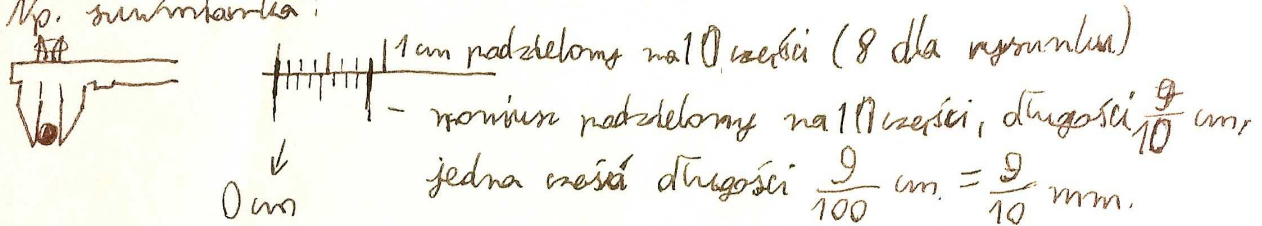 Np. suwmiarka:
1 cm podzielony na 10 części (8 dla rysunku)
- noniusz podzielony na 10 części, długości 9/10 cm,
jedna cześć długości 9/100 cm. = 9/10 mm.
0 cm